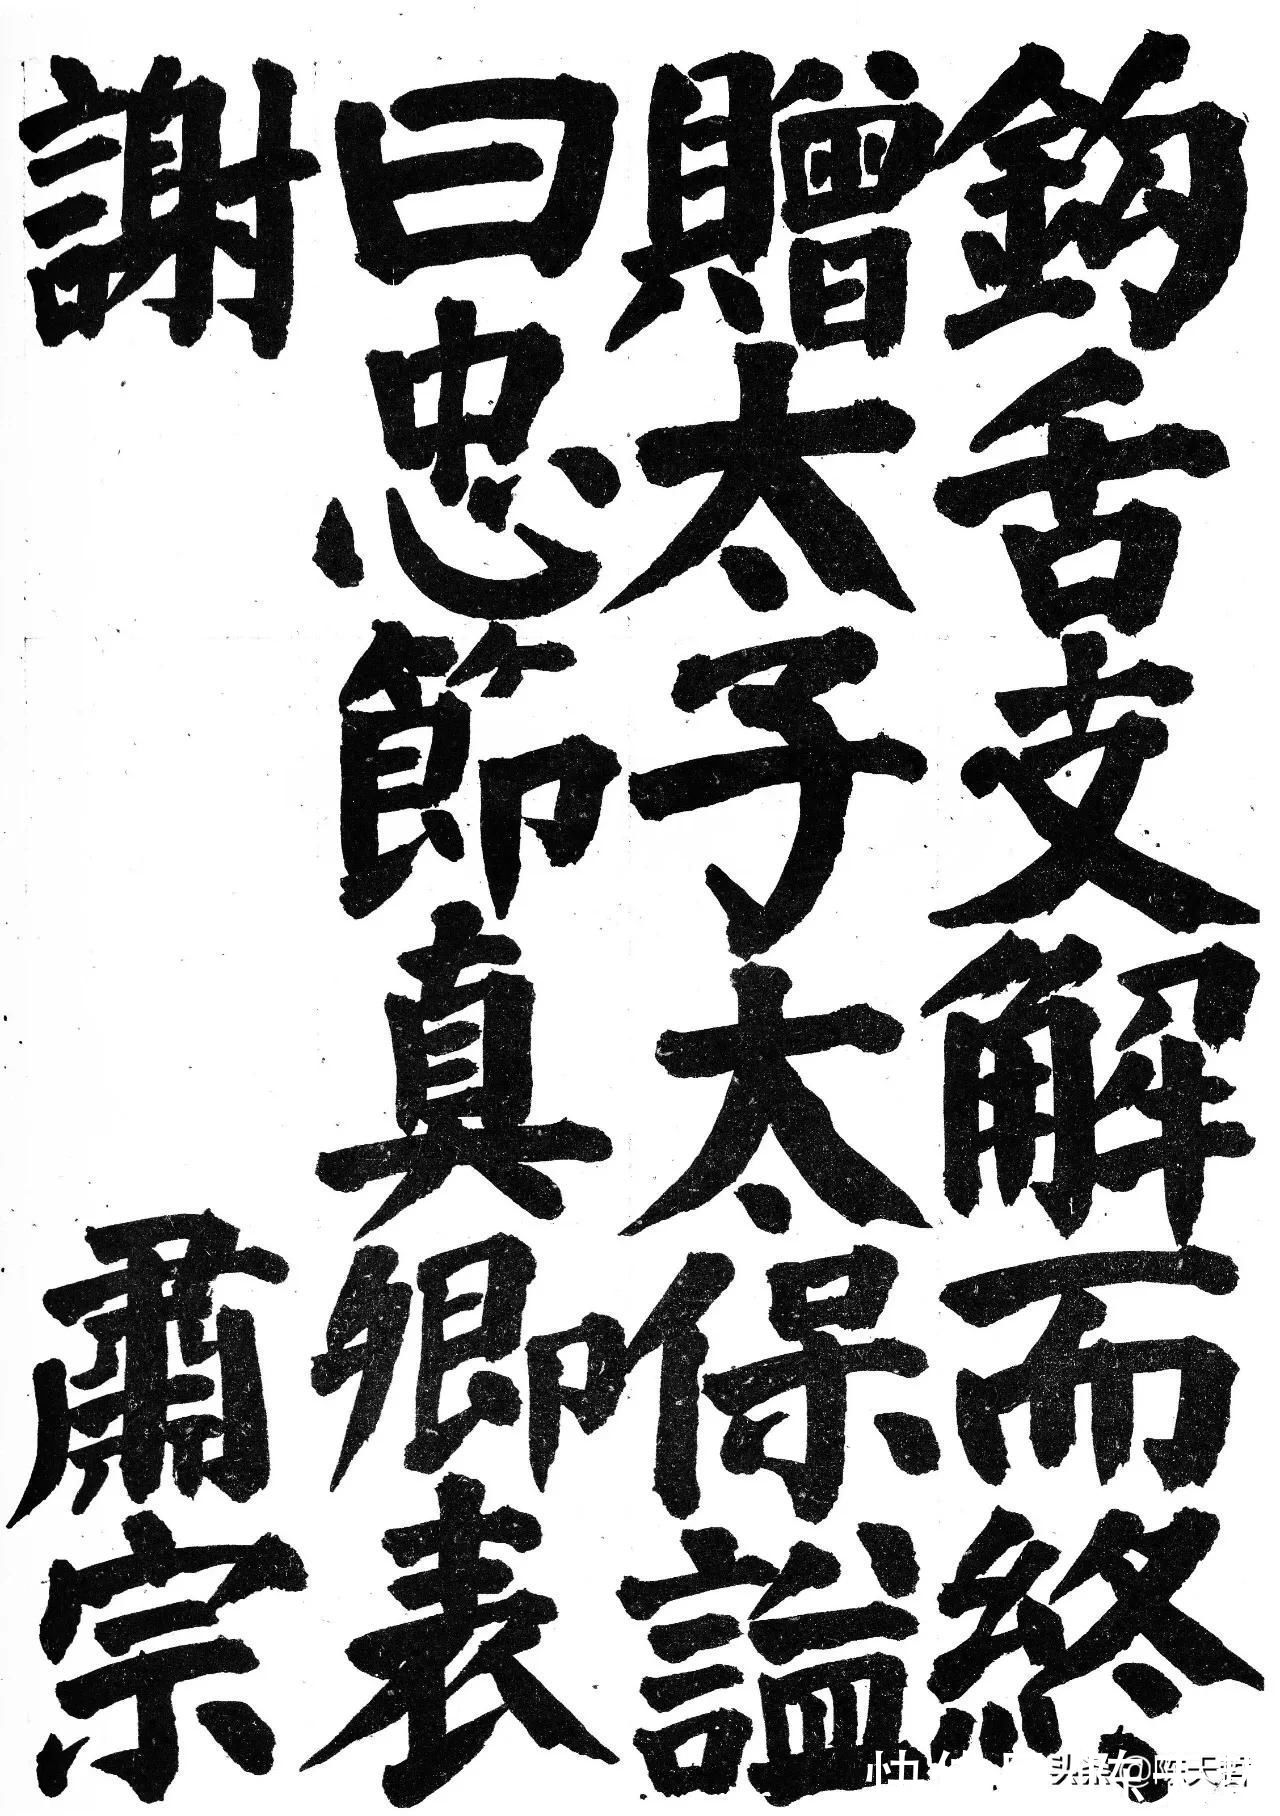 鈎舌支解而終
贈太子太保謚
曰忠節真卿表
謝 肅宗
头条@陈天哲